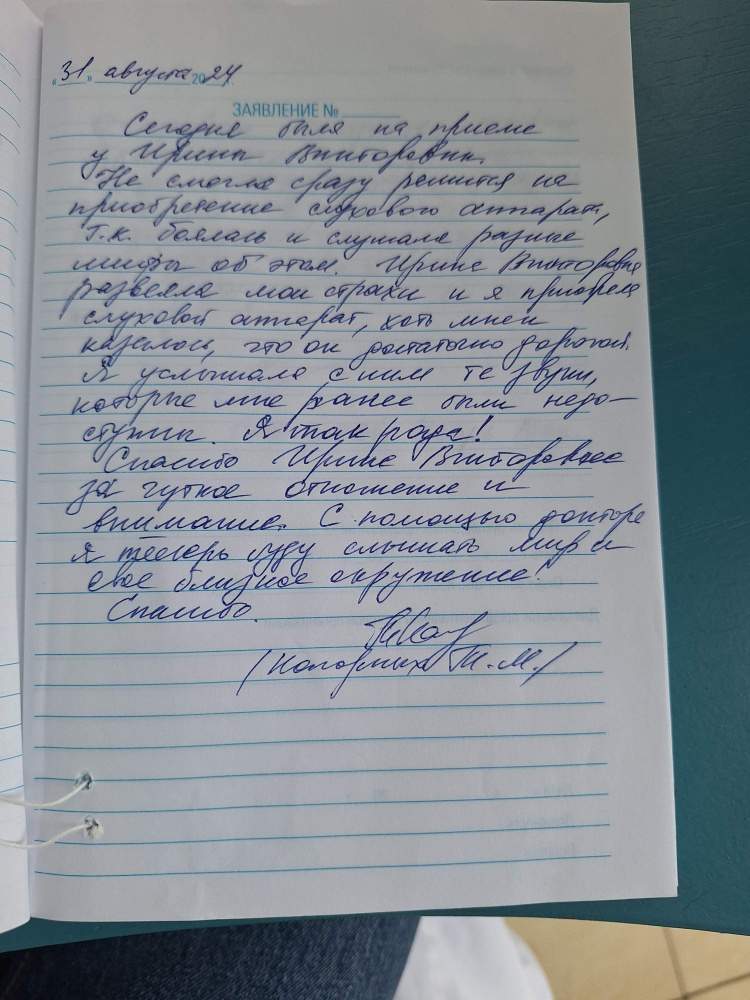 "31" августа 2024
ЗАЯВЛЕНИЕ №
Сегодня была на приеме
у Ирины Викторовны.
Не смогла сразу решится на
приобретение слухового аппарата,
т.к. боялась и слушала разные
мифы об этом. Ирина Викторовна
развеяла мои страхи и я приобрела
слуховой аппарат, хоть мне и
казалось, что он достаточно дорогой.
Я услышала с ним те звуки,
которые мне ранее были недо-
ступны. Я так рада!
Спасибо Ирине Викторовне
за чуткое отношение и
внимание. С помощью доктора
я теперь буду слышать мир и
свое близкое окружение!
Спасибо.
Т.М./